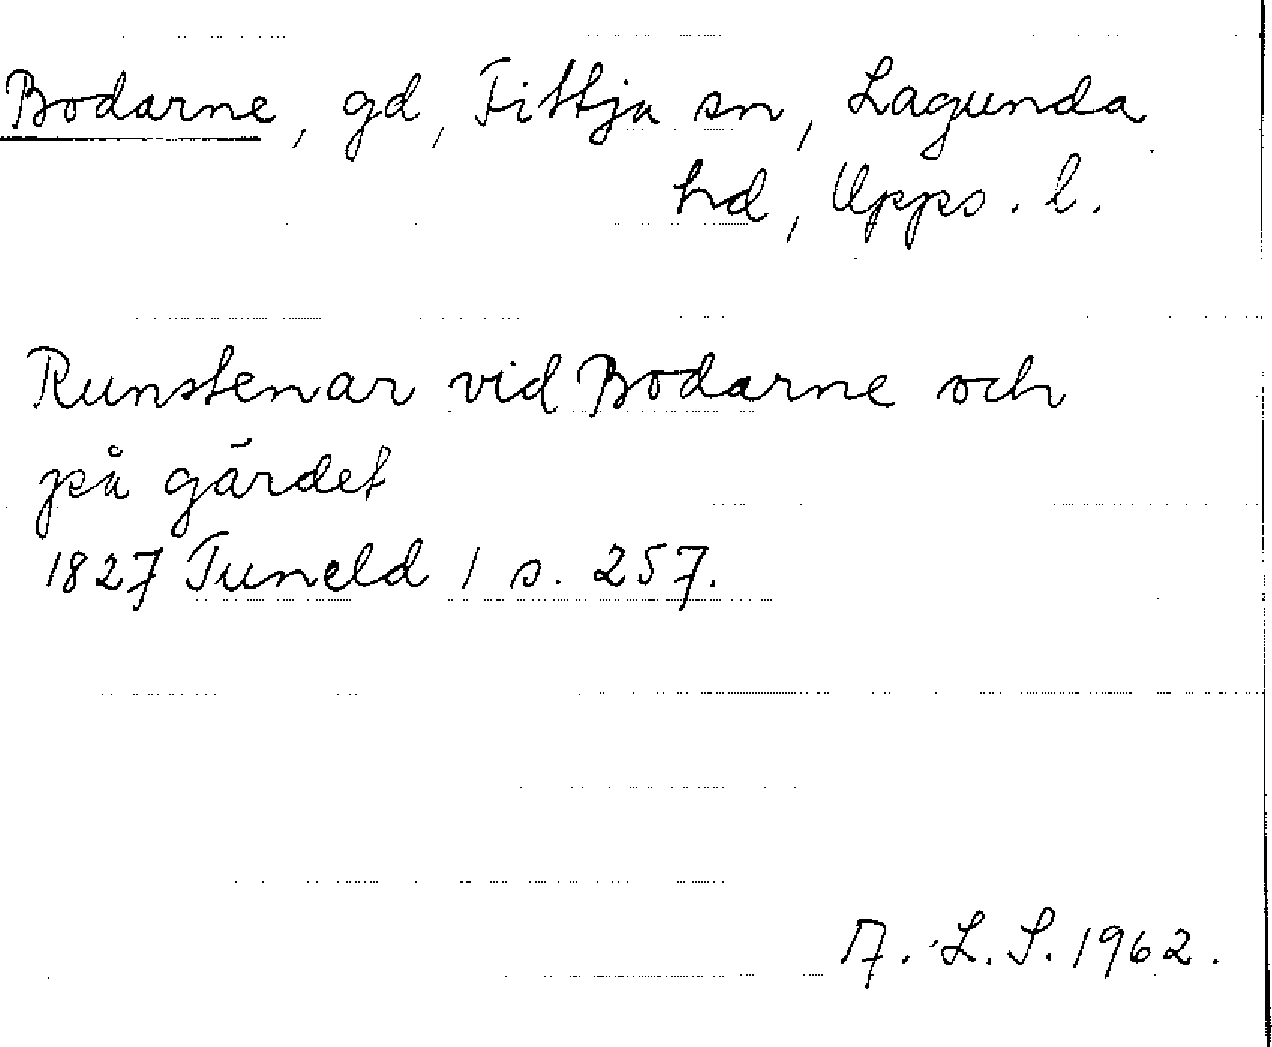 Bodarne, gd, Fittja sn, Lagunda
hd, Upps. l.
Runstenar vid Bodarne och
på gärdet
1827 Tuneld 1 s. 257.
A. L. S. 1962.